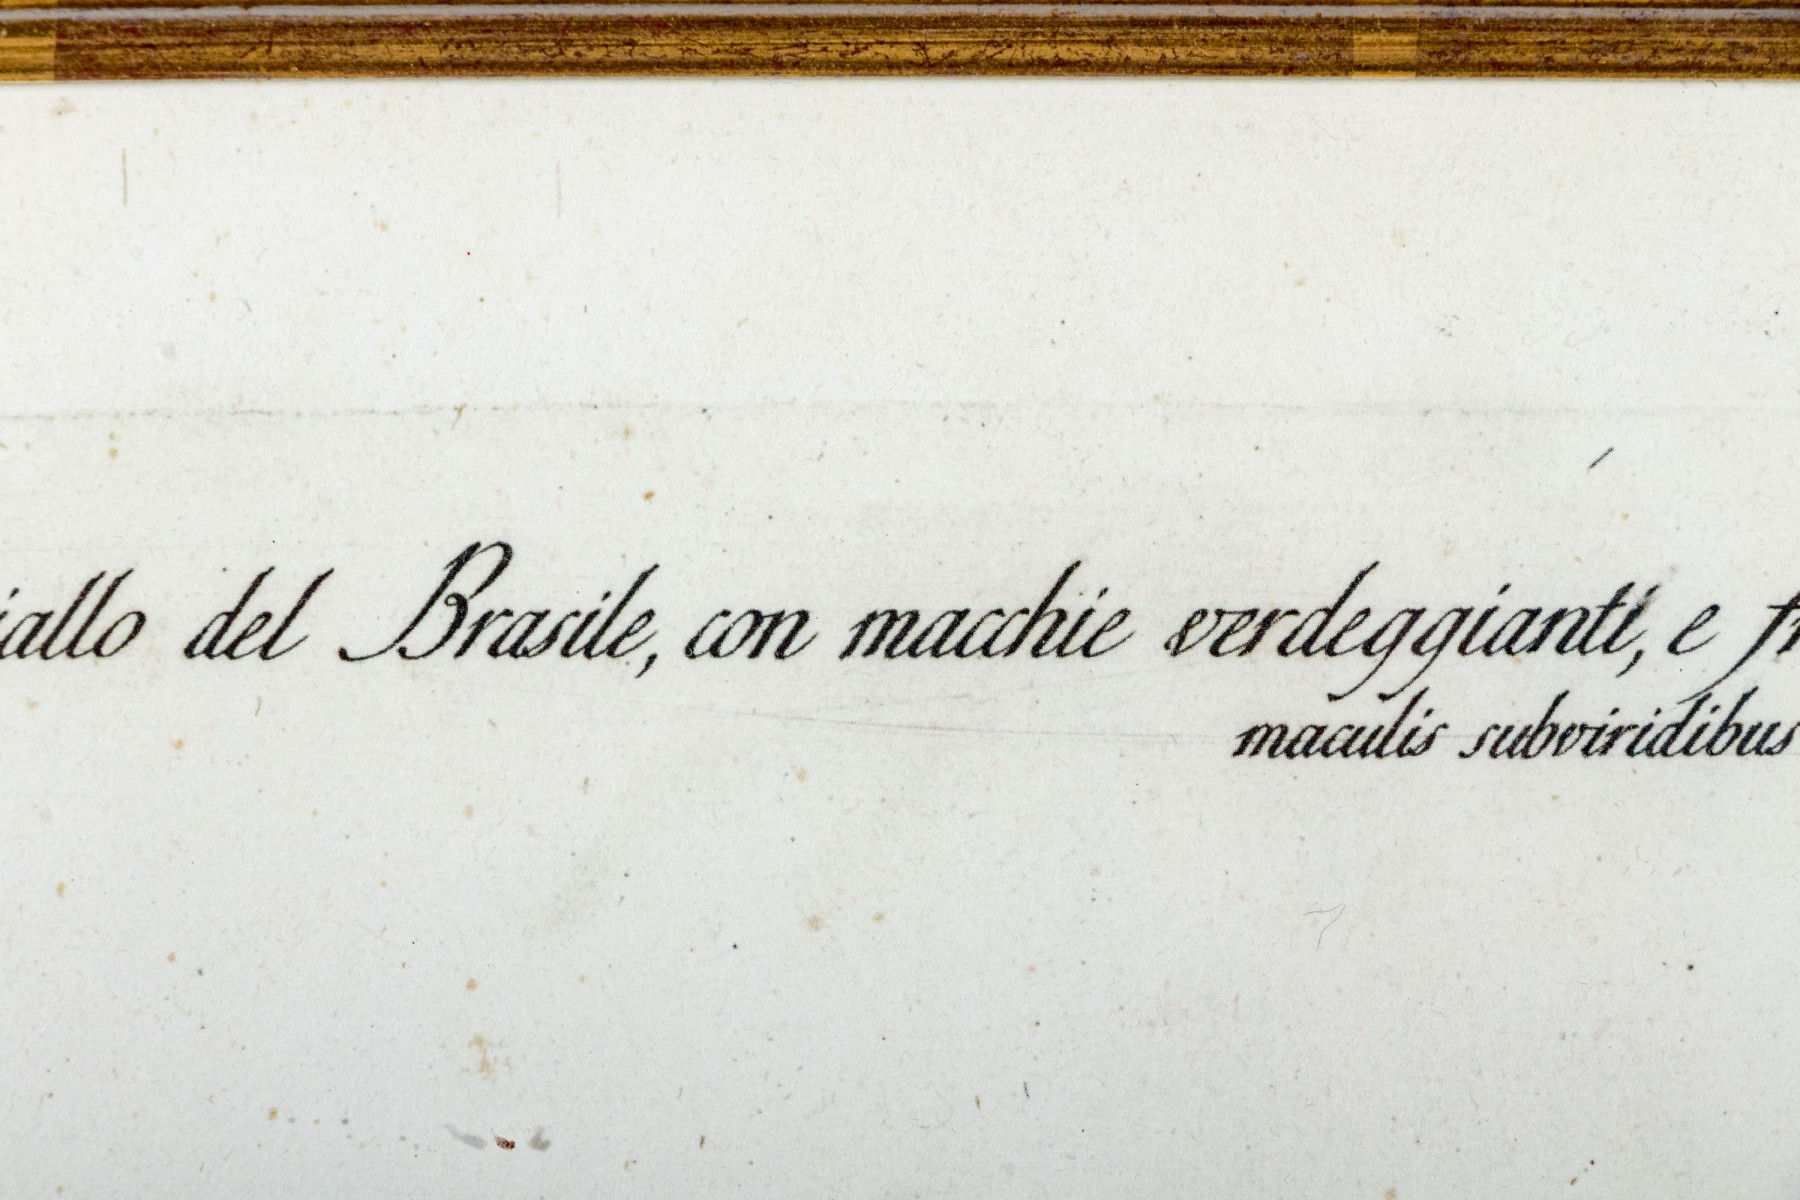 iallo del Brasile, con macchie verdeggianti, e fr
maculis subviridibus